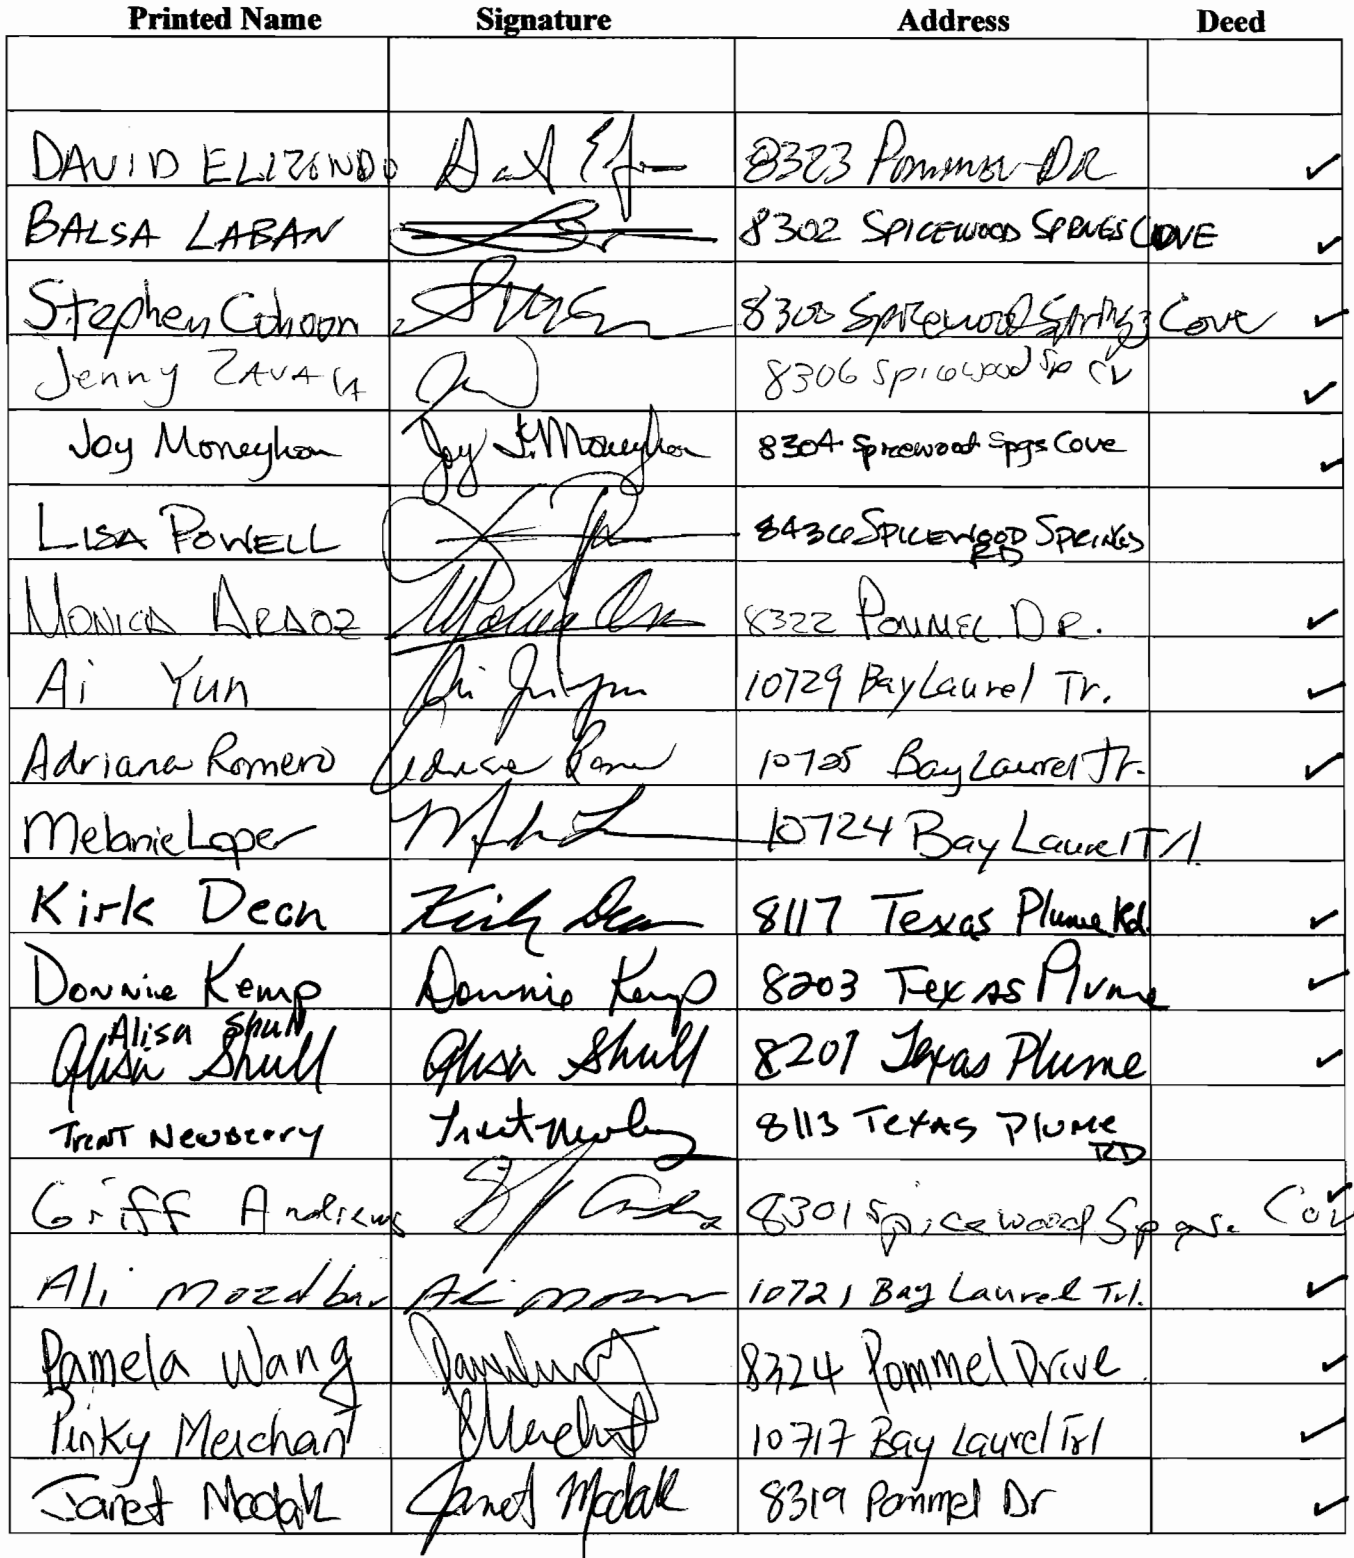 Printed Name Signature Address Deed
DAVID ELIZONDO 8323 Pommel DR ✓
BALSA LABAN 8302 SPICEWOOD SPRNGS COVE ✓
Stephen Cohoon 8300 Spicewood Springs Cove ✓
Jenny ZAVALA 8306 Spicewood Sp CV ✓
Joy Moneyhon Joy Moneyhon 8304 Spicewood Spgs Cove ✓
LISA POWELL 8436 SPICEWOOD SPRINGS
RD
MONICA ARAOZ 8322 POMMEL DR. ✓
Ai Yun 10729 Bay Laurel Tr. ✓
Adriana Romero 10725 Bay Laurel Tr. ✓
Melanie Loper 10724 Bay Laurel Trl.
Kirk Dean Kirk Dean 8117 Texas Plume Rd. ✓
Donnie Kemp Donnie Kemp 8203 Texas Plume ✓
Alisa Shull
Alisa Shull Alisa Shull 8201 Texas Plume ✓
TRENT NEWBERRY 8113 TEXAS PLUME
RD
Griff Andrews 8301 Spicewood Spgs. Cov ✓
Ali mozdbar 10721 Bay Laurel Trl. ✓
Pamela Wang 8324 Pommel Drive ✓
Pinky Merchant PMerchant 10717 Bay Laurel Trl ✓
Janet Modak Janet Modak 8319 Pommel Dr ✓